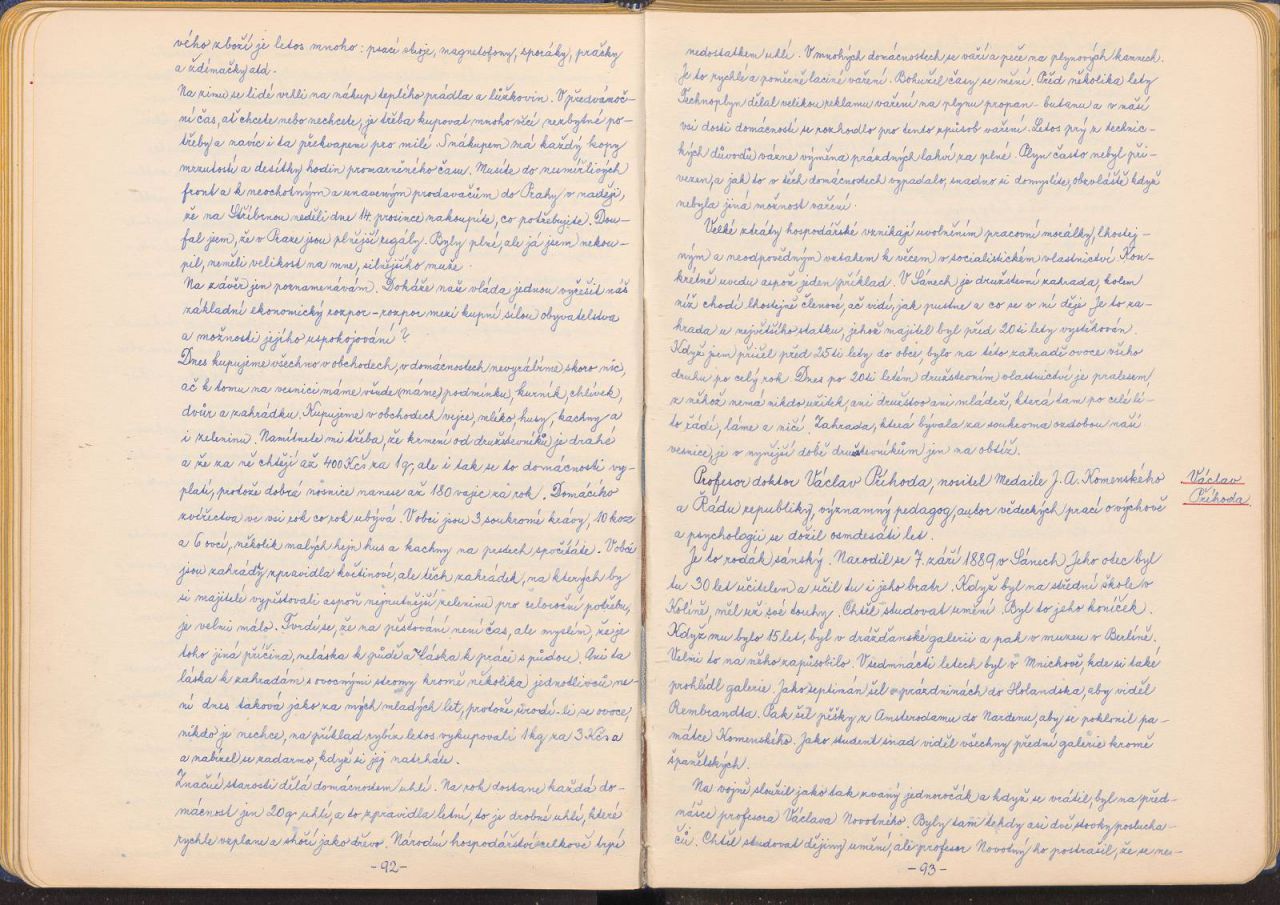 vého zboží je letos mnoho: prací stroje, magnetofony, sporáky, pračky
a ždímačky atd.
Na zimu se lidé vrhli na nákup teplého prádla a lůžkovin. V předvánoč-
ní čas, ať chcete nebo nechcete, je třeba kupovat mnoho věcí nezbytné po-
třeby a navíc i ta překvapení pro milé. S nákupem má každý kopy
mrzutostí a desítky hodin promarněného času. Musíte do nesmířlivých
front a k neochotným a unaveným prodavačům do Prahy v naději,
že na Stříbrnou neděli dne 14. prosince nakoupíte, co potřebujete. Dou-
fal jsem, že v Praze jsou plnější regály. Byly plné, ale já jsem nekou-
pil, neměli velikost na mne, silnějšího muže.
Na závěr jen poznamenávám. Dokáže naše vláda jednou vyřešit náš
základní ekonomický rozpor - rozpor mezi kupní silou obyvatelstva
a možností jejího uspokojování?
Dnes kupujeme všechno v obchodech, v domácnostech nevyrábíme skoro nic,
ač k tomu na vesnici máme všude (máme) podmínku, kurník, chlívek,
dvůr a zahrádku. Kupujeme v obchodech vejce, mléko, husy, kachny a
i zeleninu. Namítnete mi třeba, že krmení od družstevníků je drahé
a že za ně chtějí až 400 Kčs za 1 q, ale i tak se to domácnosti vy-
platí, protože dobrá nosnice nanese až 180 vajec za rok. Domácího
zvířectva ve vsi rok co rok ubývá. V obci jsou 3 soukromé krávy, 10 koz
a 6 ovcí, několik malých hejn hus a kachny na prstech spočítáte. V obci
jsou zahrádky zpravidla květinové, ale těch zahrádek, na kterých by
si majitelé vypěstovali aspoň nejnutnější zeleninu pro celoroční potřebu,
je velmi málo. Tvrdí se, že na pěstování není čas, ale myslím, že je
toho jiná příčina, neláska k půdě a láska k práci s půdou. Ani ta
láska k zahradám s ovocnými stromy kromě několika jednotlivců ne-
ní dnes taková jako za mých mladých let, protože urodí-li se ovoce,
nikdo je nechce, na příklad rybíz letos vykupovali 1 kg za 3 Kčs a
a nabízel se zadarmo, když si jej natrháte.
Značné starosti dělá domácnostem uhlí. Na rok dostane každá do-
mácnost jen 20 q uhlí, a to zpravidla letní, to je drobné uhlí, které
rychle vzplane a shoří jako dřevo. Národní hospodářství celkově trpí
-92-
nedostatkem uhlí. V mnohých domácnostech se vaří a peče na plynových kamnech.
Je to rychlé a poměrně laciné vaření. Bohužel časy se mění. Před několika lety
Technoplyn dělal velikou reklamu vaření na plynu propan-butanu a v naší
vsi dosti domácností se rozhodlo pro tento způsob vaření. Letos prý z technic-
kých důvodů vázne výměna prázdných lahví za plné. Plyn často nebyl při-
vezen, a jak to v těch domácnostech vypadalo, snadno si domyslíte, obzvláště když
nebyla jiná možnost vaření.
Velké ztráty hospodářské vznikají uvolněním pracovní morálky, lhostej-
ným a neodpovědným vztahem k věcem v socialistickém vlastnictví. Kon-
krétně uvedu aspoň jeden příklad. V Sánech je družstevní zahrada, kolem
níž chodí lhostejně členové, ač vidí, jak pustne a co se v ní děje. Je to za-
hrada u největšího statku, jehož majitel byl před 20ti lety vystěhován.
Když jsem přišel před 25ti lety do obce, bylo na této zahradě ovoce všeho
druhu po celý rok. Dnes po 20ti letém družstevním vlastnictví je pralesem,
z něhož nemá nikdo užitek, ani družstvo ani mládež, která tam po celé lé-
to řádí, láme a ničí. Zahrada, která bývala za soukroma ozdobou naší
vesnice, je v nynější době družstevníkům jen na obtíž.
Profesor doktor Václav Příhoda, nositel Medaile J. A. Komenského
a Řádu republiky, významný pedagog, autor vědeckých prací o výchově
a psychologii se dožil osmdesáti let.
Václav
Příhoda.
Je to rodák sánský. Narodil se 7. září 1889 v Sánech. Jeho otec byl
tu 30 let učitelem a učil tu i jeho bratr. Když byl na střední škole v
Kolíně, měl už své touhy. Chtěl studovat umění. Byl to jeho koníček.
Když mu bylo 15 let, byl v drážďanské galerii a pak v muzeu v Berlíně.
Velmi to na něho zapůsobilo. V sedmnácti letech byl v Mnichově, kde si také
prohlédl galerie. Jako septimán šel o prázdninách do Holandska, aby viděl
Rembrandta. Pak šel pěšky z Amsterodamu do Nardenu, aby se poklonil pa-
mátce Komenského. Jako student snad viděl všechny přední galerie kromě
španělských.
Na vojně sloužil jako tak zvaný jednoročák a když se vrátil, byl na před-
nášce profesora Václava Novotného. Byly tam tehdy asi dvě stovky poslucha-
čů. Chtěl studovat dějiny umění, ale profesor Novotný ho postrašil, že se neu-
-93-